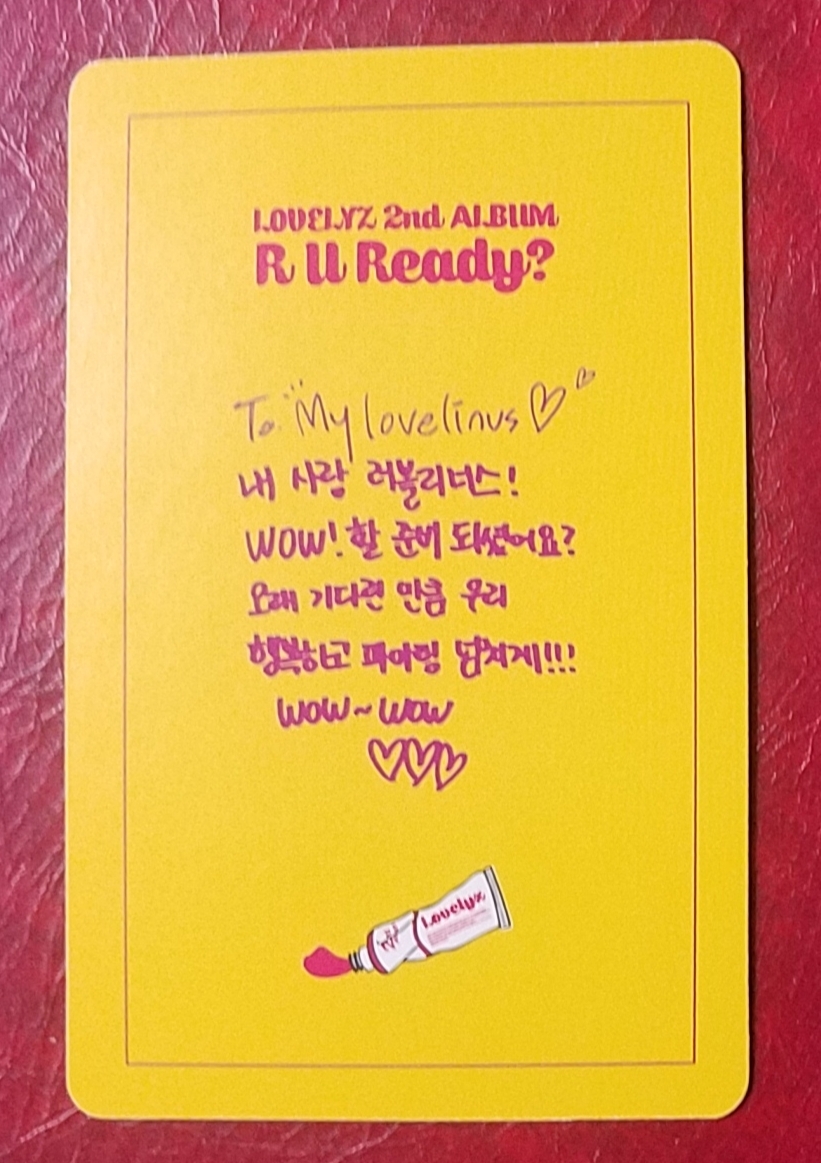 LOVELYZ 2nd ALBUM
R U Ready?
To. "My lovelinus♡♡
내 사랑 러블리너스!
WOW! 할 준비 되셨어요?
오래 기다린 만큼 우리
행복하고 파이팅 넘치게!!!
WOW~WOW
♡♡♡
Lovelyz